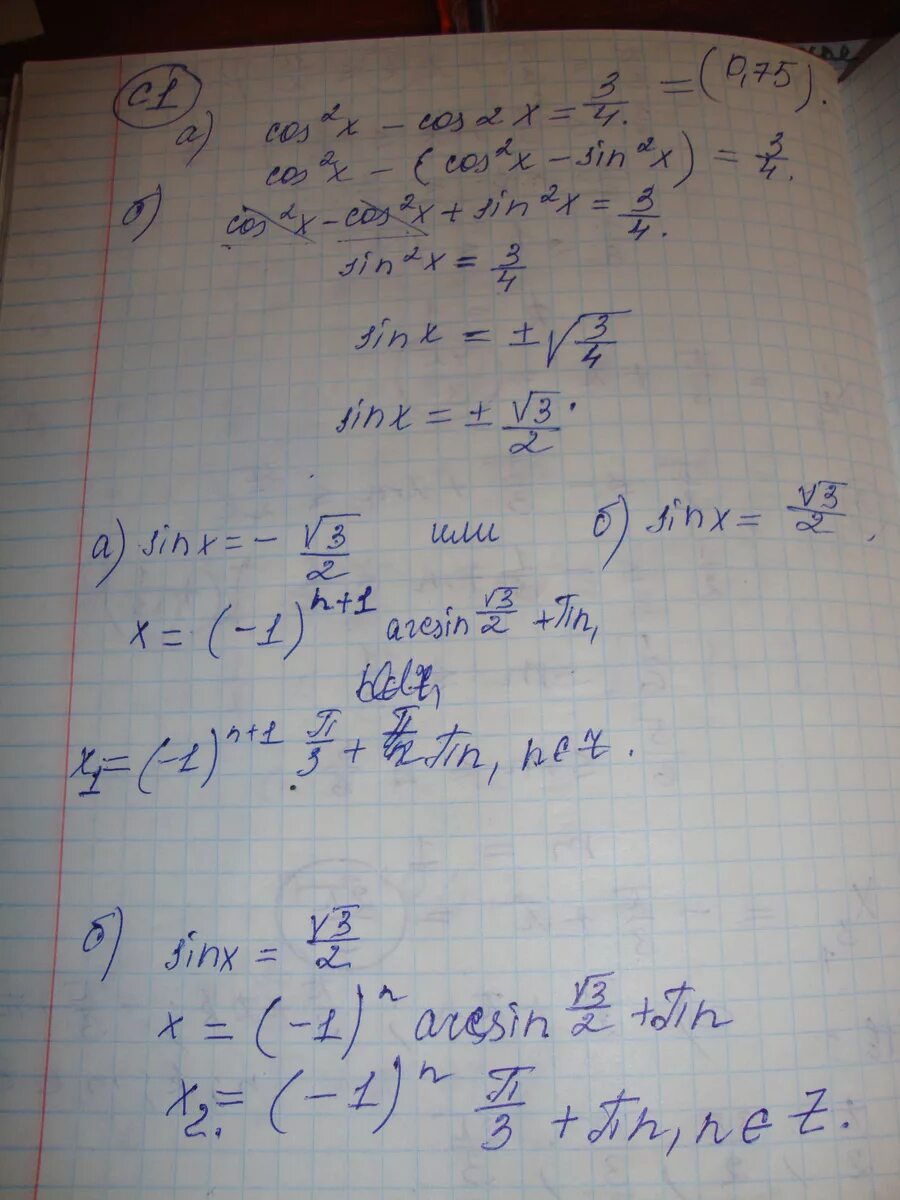 С1
а) cos²x - cos2x = 3/4. = (0,75).
cos²x - (cos²x - sin²x) = 3/4.
б) cos²x - cos²x + sin²x = 3/4.
sin²x = 3/4
sinx = ±√(3/4)
sinx = ± √3/2.
а) sinx = - √3/2 или б) sinx = √3/2,
x = (-1)ⁿ⁺¹ arcsin √3/2 + πn,
x₁ = (-1)ⁿ⁺¹ π/3 + πn, n∈Z.
б) sinx = √3/2
x = (-1)ⁿ arcsin √3/2 + πn
x₂. = (-1)ⁿ π/3 + πn, n∈Z.